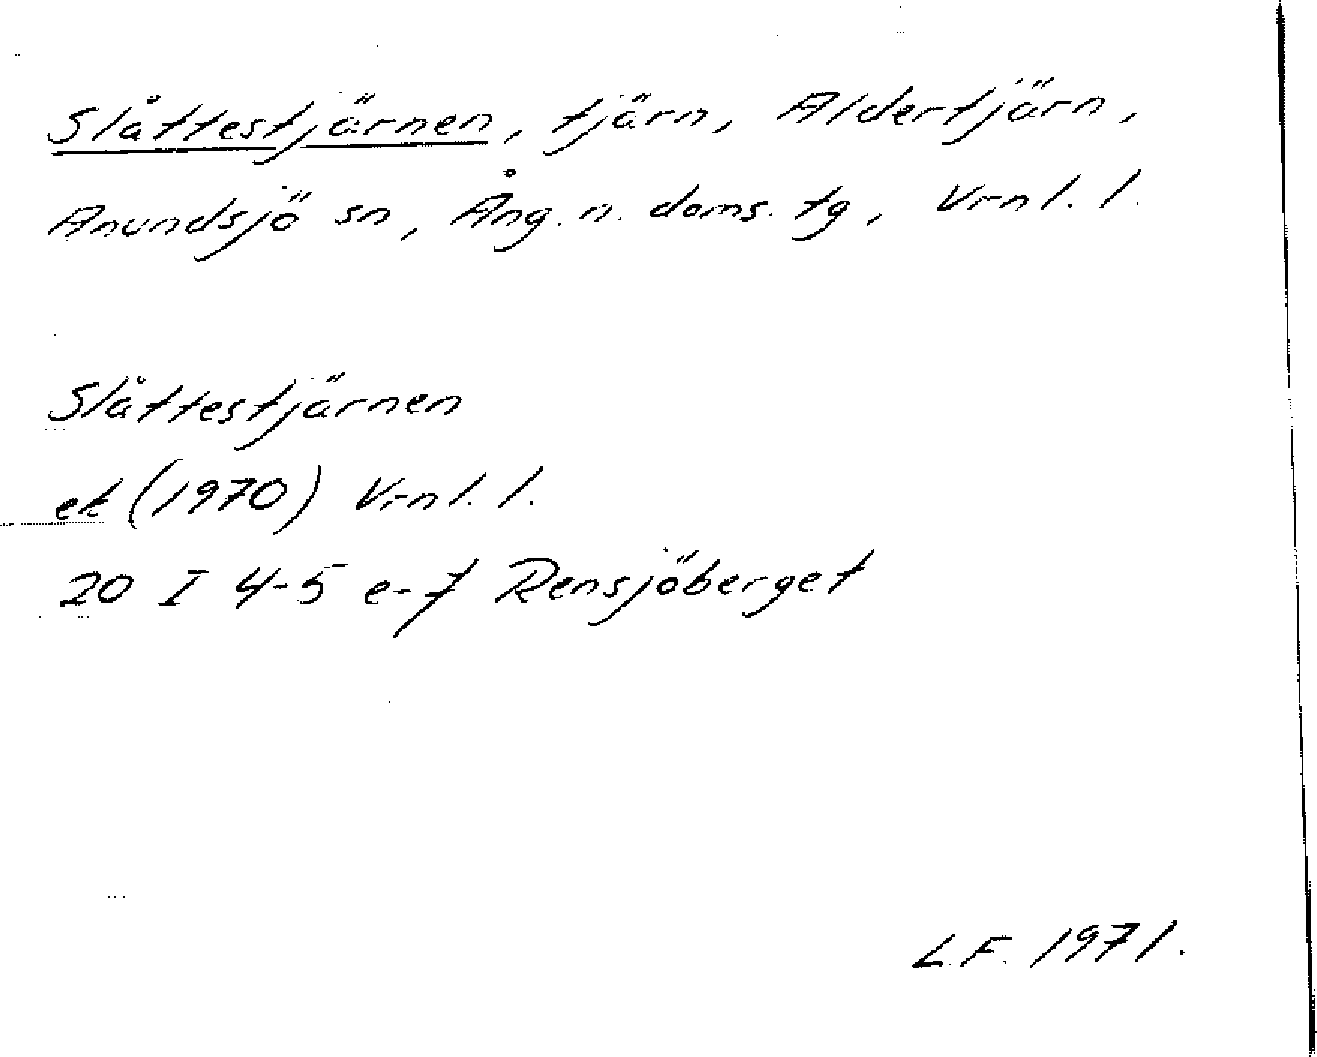 Slåttestjärnen, tjärn, Aldertjärn,
Anundsjö sn, Ång. n. doms. tg, Vrnl. l.
Slåttestjärnen
ek (1970) Vrnl. l.
20 I 4-5 e-f Rensjöberget
L.F. 1971.